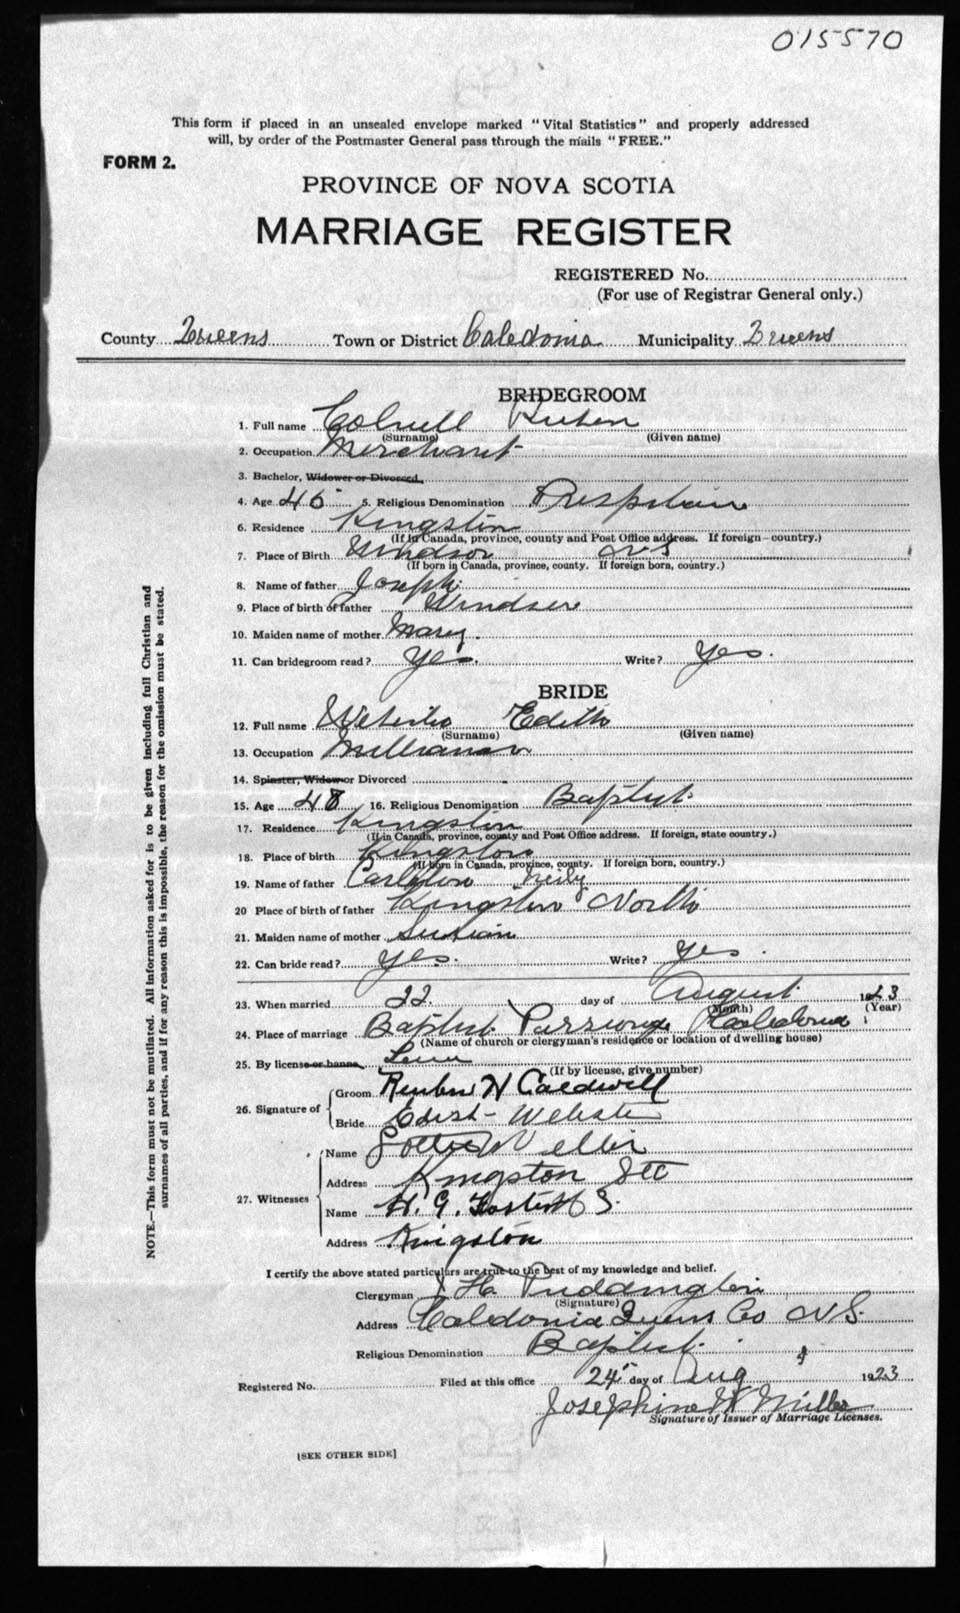 015570
This form if placed in an unsealed envelope marked "Vital Statistics" and properly addressed
will, by order of the Postmaster General pass through the mails "FREE."
FORM 2.
PROVINCE OF NOVA SCOTIA
MARRIAGE REGISTER
REGISTERED No.
(For use of Registrar General only.)
County Queens Town or District Caledonia Municipality Queens
BRIDEGROOM
1. Full name Ruben
(Surname) (Given name)
2. Occupation Merchant
3. Bachelor, Widower or Divorced
4. Age 45 5. Religious Denomination
6. Residence Kingston
(If in Canada, province, county and Post Office address. If foreign—country.)
7. Place of Birth Windsor NS
(If born in Canada, province, county. If foreign born, country.)
8. Name of father Joseph
9. Place of birth of father Windsor
10. Maiden name of mother Mary.
11. Can bridegroom read? Yes. Write? Yes.
BRIDE
12. Full name Edith
(Surname) (Given name)
13. Occupation
14. Spinster, Widow or Divorced
15. Age 48 16. Religious Denomination Baptist.
17. Residence Kingston
(If in Canada, province, county and Post Office address. If foreign, state country.)
18. Place of birth Kingston
(If born in Canada, province, county. If foreign born, country.)
19. Name of father Carleton Neily
20 Place of birth of father Kingston North
21. Maiden name of mother
22. Can bride read? Yes. Write? Yes.
23. When married 22. day of August 1923
(Month) (Year)
24. Place of marriage Baptist Caledonia
(Name of church or clergyman's residence or location of dwelling house)
25. By license or banns
(If by license, give number)
26. Signature of Groom Reuben H Caldwell
Bride Webster
27. Witnesses Name
Address Kingston
Name H. G. Foster
Address Kingston
I certify the above stated particulars are true to the best of my knowledge and belief.
Clergyman H. Puddington
(Signature)
Address Caledonia Queens Co N S.
Religious Denomination Baptist.
Registered No. Filed at this office 24 day of Aug 1923
Josephine W Miller
Signature of Issuer of Marriage Licenses.
[SEE OTHER SIDE]
NOTE.—This form must not be mutilated. All information asked for is to be given including full Christian and
surnames of all parties, and if for any reason this is impossible, the reason for the omission must be stated.